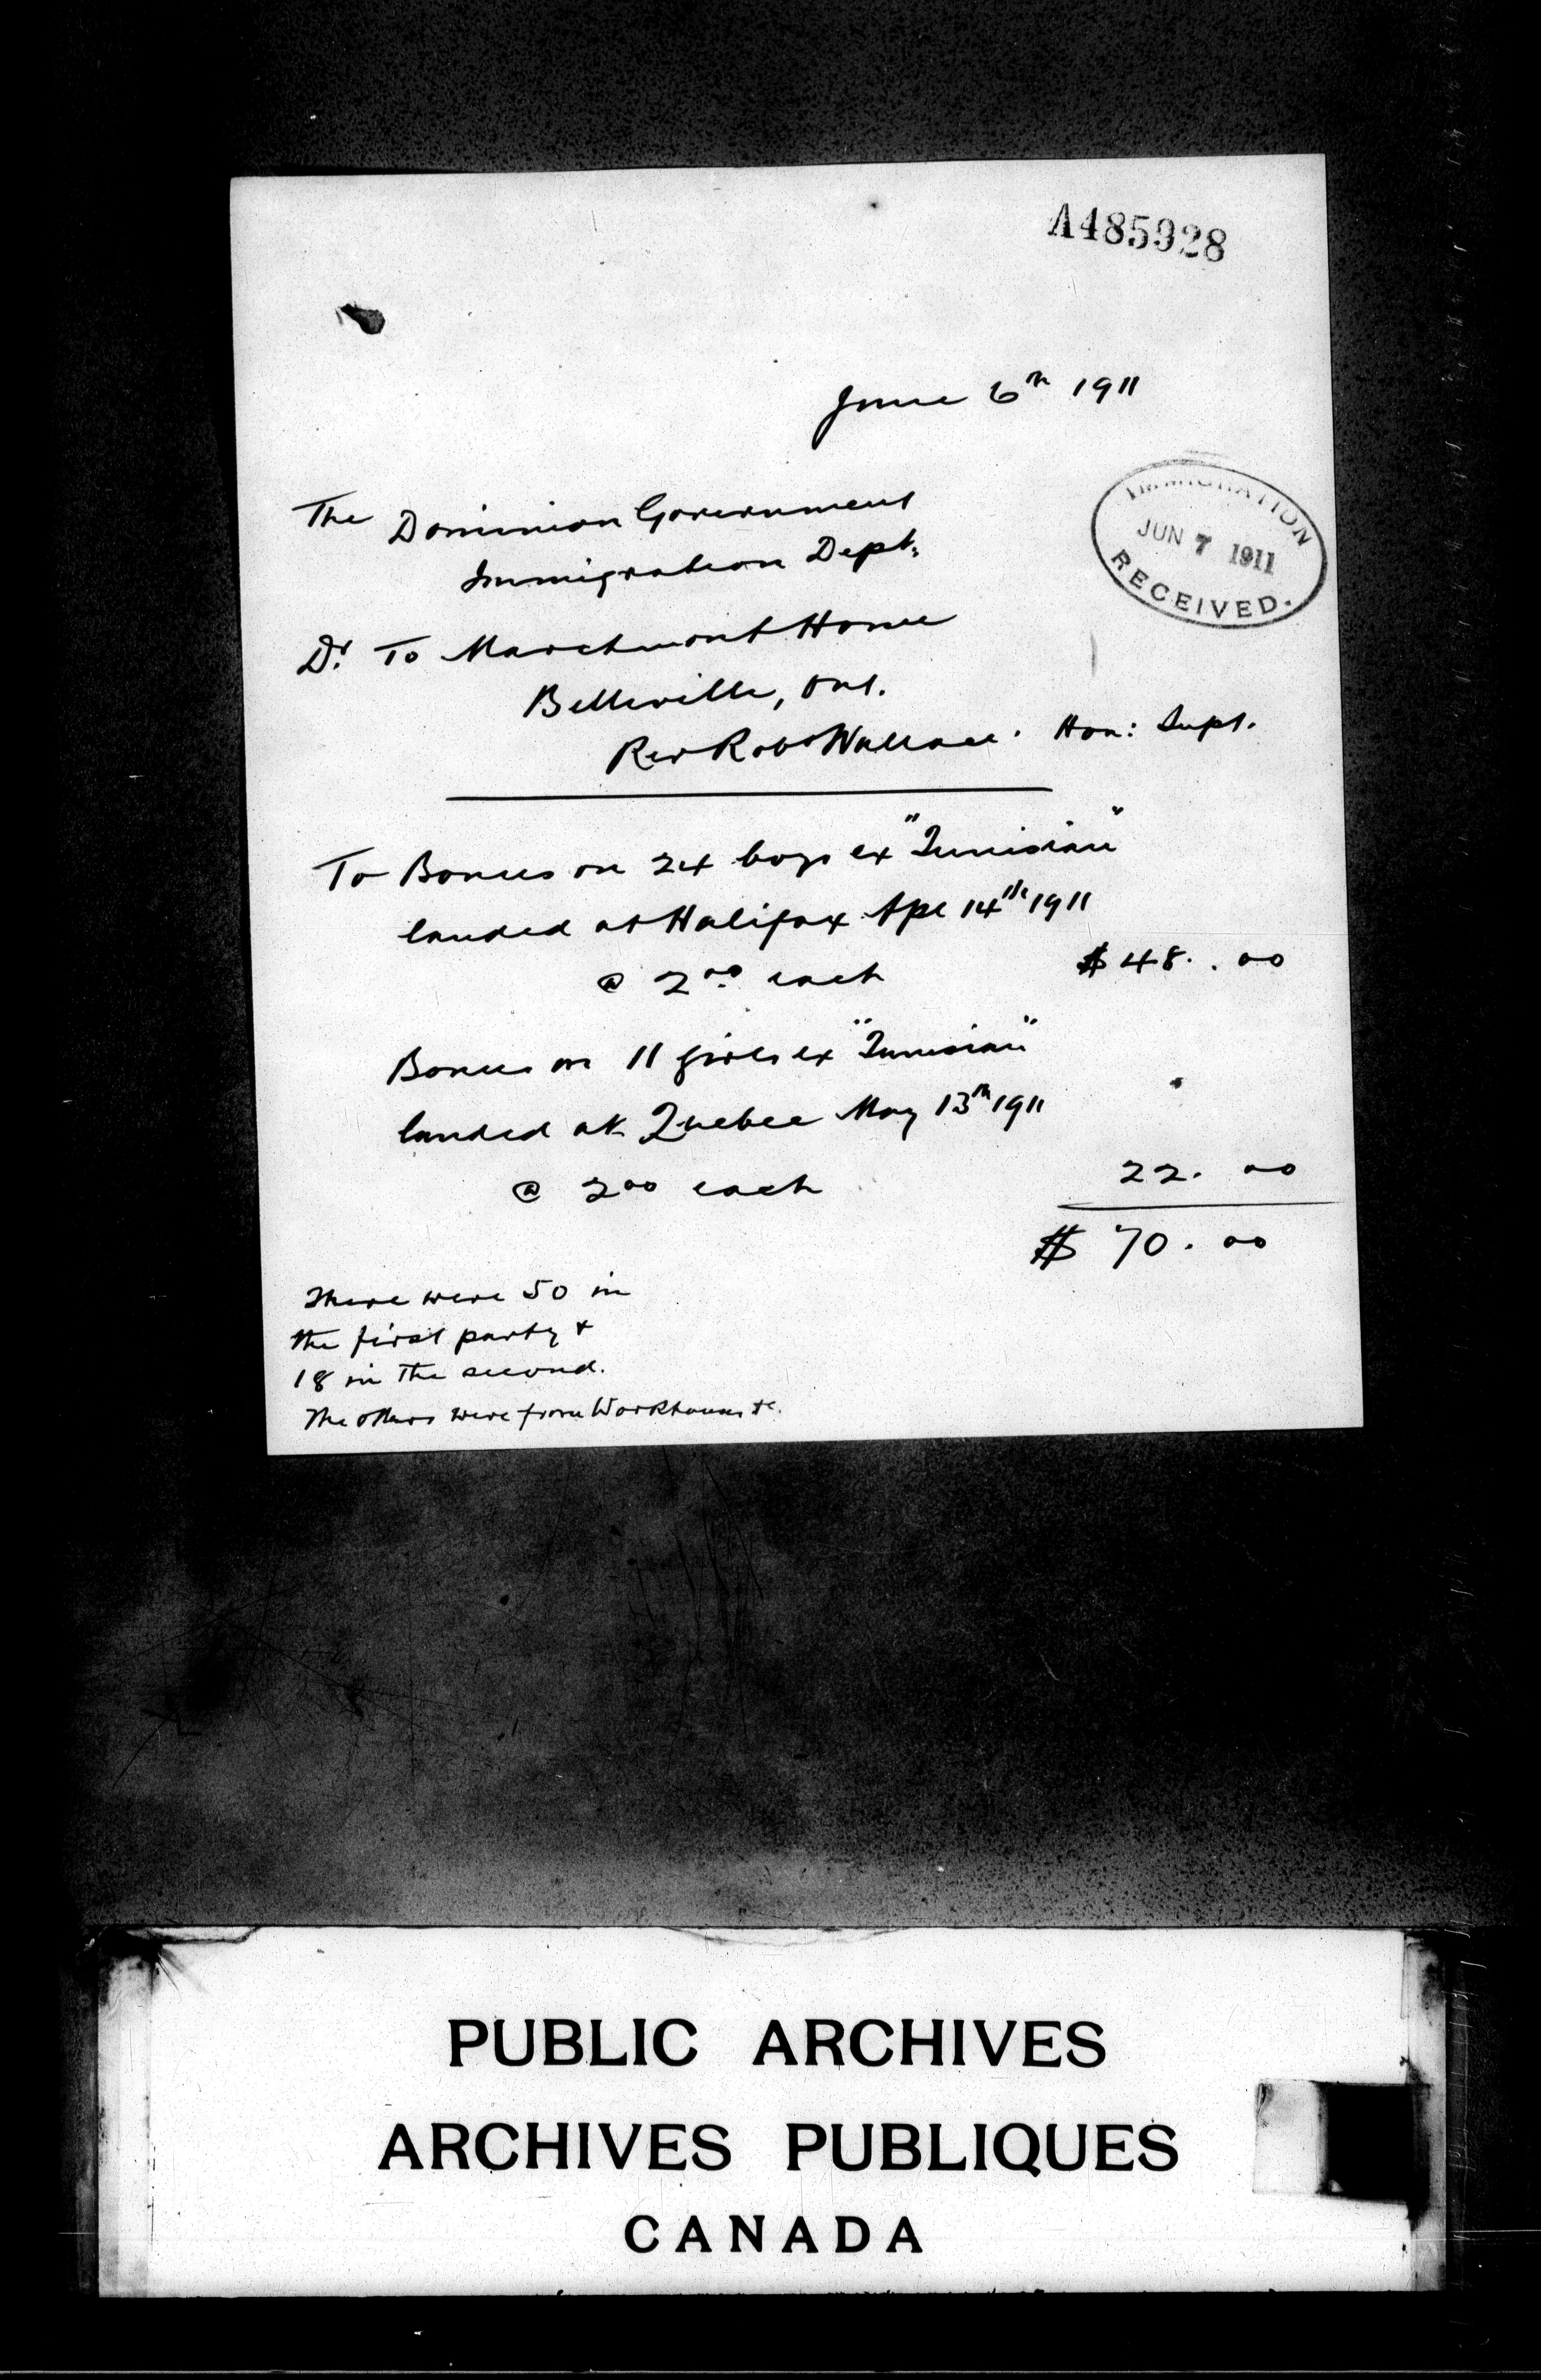 A485928
June 6th 1911
The Dominion Government
Immigration Dept.
IMMIGRATION
JUN 7 1911
RECEIVED.
Dr. To Marchmont Home
Belleville, Ont.
Rev Robt Wallace. Hon: Supt.
To Bonus on 24 boys ex "Tunisian"
landed at Halifax Apl 14th 1911
@ 2.00 each $48..00
Bonus on 11 girls ex "Tunisian"
landed at Quebec May 13th 1911
@ 2 00 each 22. 00
$ 70. 00
There were 50 in
the first party &
18 in the second.
The others were from Workhouses &c.
PUBLIC ARCHIVES
ARCHIVES PUBLIQUES
CANADA